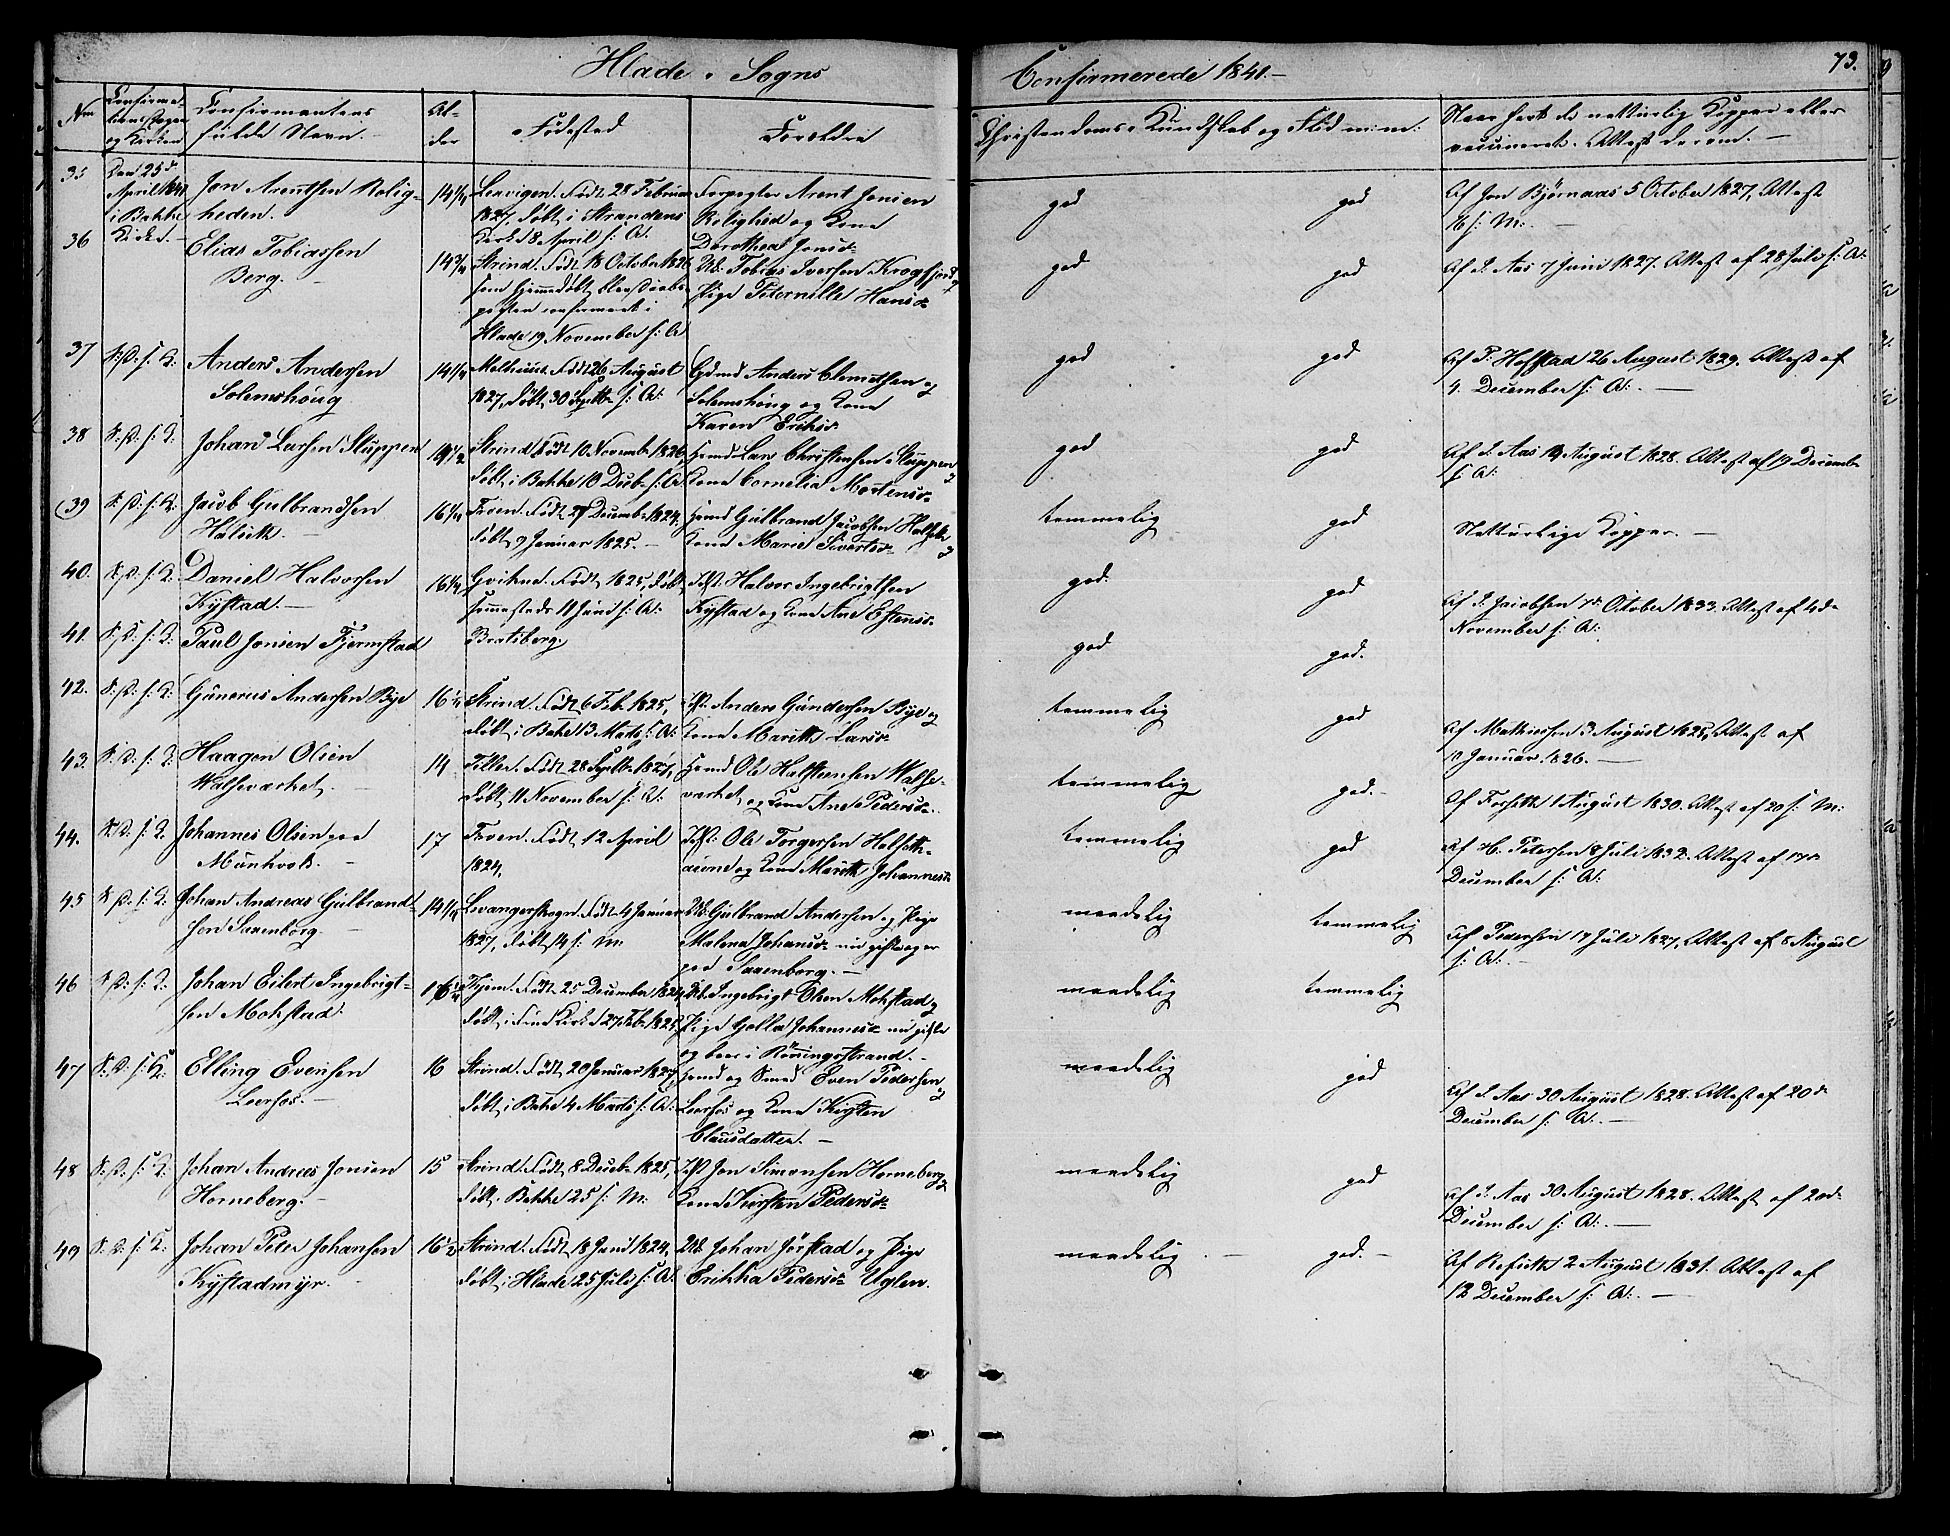 Hlade Sogns Confirmerede 1841.
73.
Nm
Confirma-
tionsdagen
og Kirken
Confirmantens
fulde Navn.
Al-
der
Fødested
Forældre
Christendoms Kundskab og Flid m: m:
Naar havt de naturlig Kopper eller
vaccineret. Attest derom.
35
Den 25de
April 1841
i Bakke
Kirke.
Jon Arentsen Rolig-
heden.
14 1/4
Født 28 Februar
1827, døbt i Strandens
Kirke 8 April s: A:
Arent Jonsen
Rolighed og Kone
Dorothea Jonsd.
god
god
Af Jon Bjørnaas 5 October 1827, Attest
16 s: M:
36
Elias Tobiassen
Berg.
14 3/4
Strind. Født 18 October 1826
Hlade 19 November s: A:
Tobias Iversen
Pige Peternille Hansd.
god
god
Af P. Aas 7 Juni 1827. Attest af 28 Juli s: A:
37
S: D: s: K:
Anders Andersen
Solemshøug
14 1/4
Melhuus. Født 26 August
1827, døbt 30 Septbr s: A:
Gdmd Anders Clemetsen
Solemshøug og Kone
Karen Erichsd.
god
god
Af P. Hofstad 26 August 1829. Attest af
4. December s: A:
38
S: D: s: K:
Johan Larsen Sluppen
14 1/2
Strind. Født 10 Novembr 1826,
døbt i Bakke 10 Decbr s: A:
Hmd Lars Christensen Sluppen og
Kone Cornelia Mortensd.
god
god
Af P. Aas August 1828. Attest af 19 Decembr
s: A:
39
S: D: s: K:
Jacob Gulbrandsen
16 1/4
Født 27 Decembr 1824,
døbt 9 Januar 1825.
Hmd Gulbrand Jacobsen
Kone Marie Sivertsd.
temmelig
god
Naturlige Kopper.
40.
S: D: s: K:
Daniel Halvorsen
Kystad.
16 1/4
Født 1825, døbt
sammesteds 11 Juni s: A:
Halvor Ingebrigtsen
Kystad og Kone Ane Estensd.
god.
god
Af P. Jacobsen October 1833. Attest af 4de
November s: A:
41.
S: D: s: K:
Paul Jonsen Tjernstad
Bratsberg
god
god.
42.
S: D: s: K:
Gunerus Andersen Bye
16 1/4
Strind. Født 6 Feb. 1825,
døbt i Bakke 13 Marts s: A:
Anders Gundersen Bye og
Kone Marith Larsd.
temmelig
god
Af Mathiesen 3 August 1825, Attest af
Januar 1826.
43.
S: D: s: K:
Haagen Olsen
Walseværket.
14
Tiller. Født 28 Septbr 1827,
døbt 11 November s: A:
Hmd Ole Halsteensen Walse-
værket og Kone Ane Pedersd.
temmelig
god.
Af Forseth 1 August 1830. Attest af 20 s: M:
44.
S: D: s: K:
Johannes Olsen paa
Munkvold.
17
Født 12 April
1824,
Ole Torgersen
og Kone Marith Johannesd.
temmelig
god
Af H. Petersen 8 Juli 1832. Attest af 17de
December s: A:
45
S: D: s: K:
Johan Andreas Gulbrand-
sen Saxenborg.
14 1/4
Levanger Sogn. Født 4 Januar
1827, døbt 14 s: M:
Gulbrand Andersen og Pige
Malena Johansd. nu gifte og er
paa Saxenborg.
maadelig
temmelig
Af Pedersen 17 Juli 1827, Attest af 8 August
s: A:
46
S: D: s: K:
Johan Eilert Ingebrigt-
sen Mohstad.
16 1/4
Født 25 December 1824,
27 Feb. 1825,
Ingebrigt Olsen Mohstad og
Pige Golla Johannesd. nu gifte
og boer i Røningsstrand.
maadelig
temmelig
47
S: D: s: K:
Elling Evensen
Leerfos.
16
Strind. Født 20 Januar 1825,
døbt i Bakke 4 Marts s: A:
Hmd og Smed Even Pedersen
Leerfos og Kone Kirsten
Clausdatter.
maadelig
god
Af P. Aas 30 August 1828. Attest af 20de
December s: A:
48
S: D: s: K:
Johan Andreas Jonsen
Horneberg.
15
Strind. Født 8 Decbr 1825,
døbt i Bakke 25 s: M:
Jon Simonsen Horneberg og
Kone Kirsten Pedersd.
maadelig
god
Af P. Aas 30 August 1828. Attest af 20de
December s: A:
49
S: D: s: K:
Johan Peter Johansen
Kystadmyr.
16 1/2
Strind. Født 18 Juni 1824,
døbt i Hlade 25 Juli s: A:
Johan Jørstad og Pige
Erikka Pedersd. Uglen.
maadelig
god.
Af Refseth 2 August 1831. Attest af
12 December s: A: